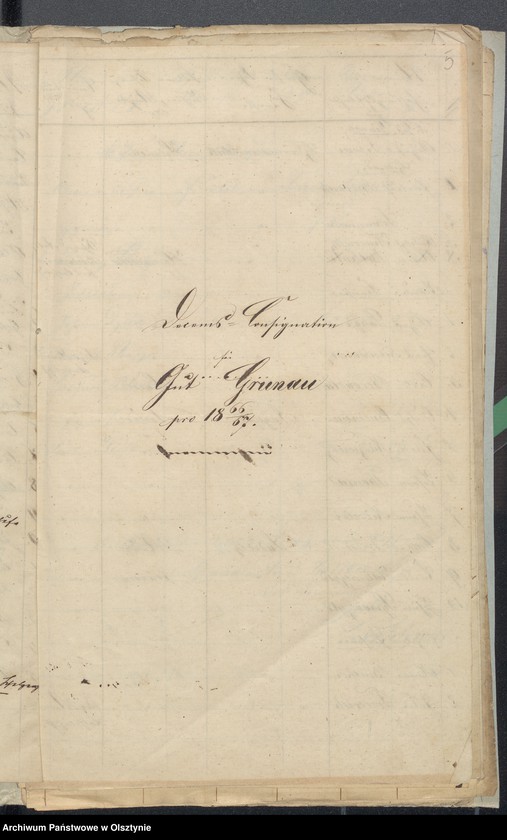 5
Decems-Consignation
für
Gut Grünau
pro 18 66/67.
Archiwum Państwowe w Olsztynie